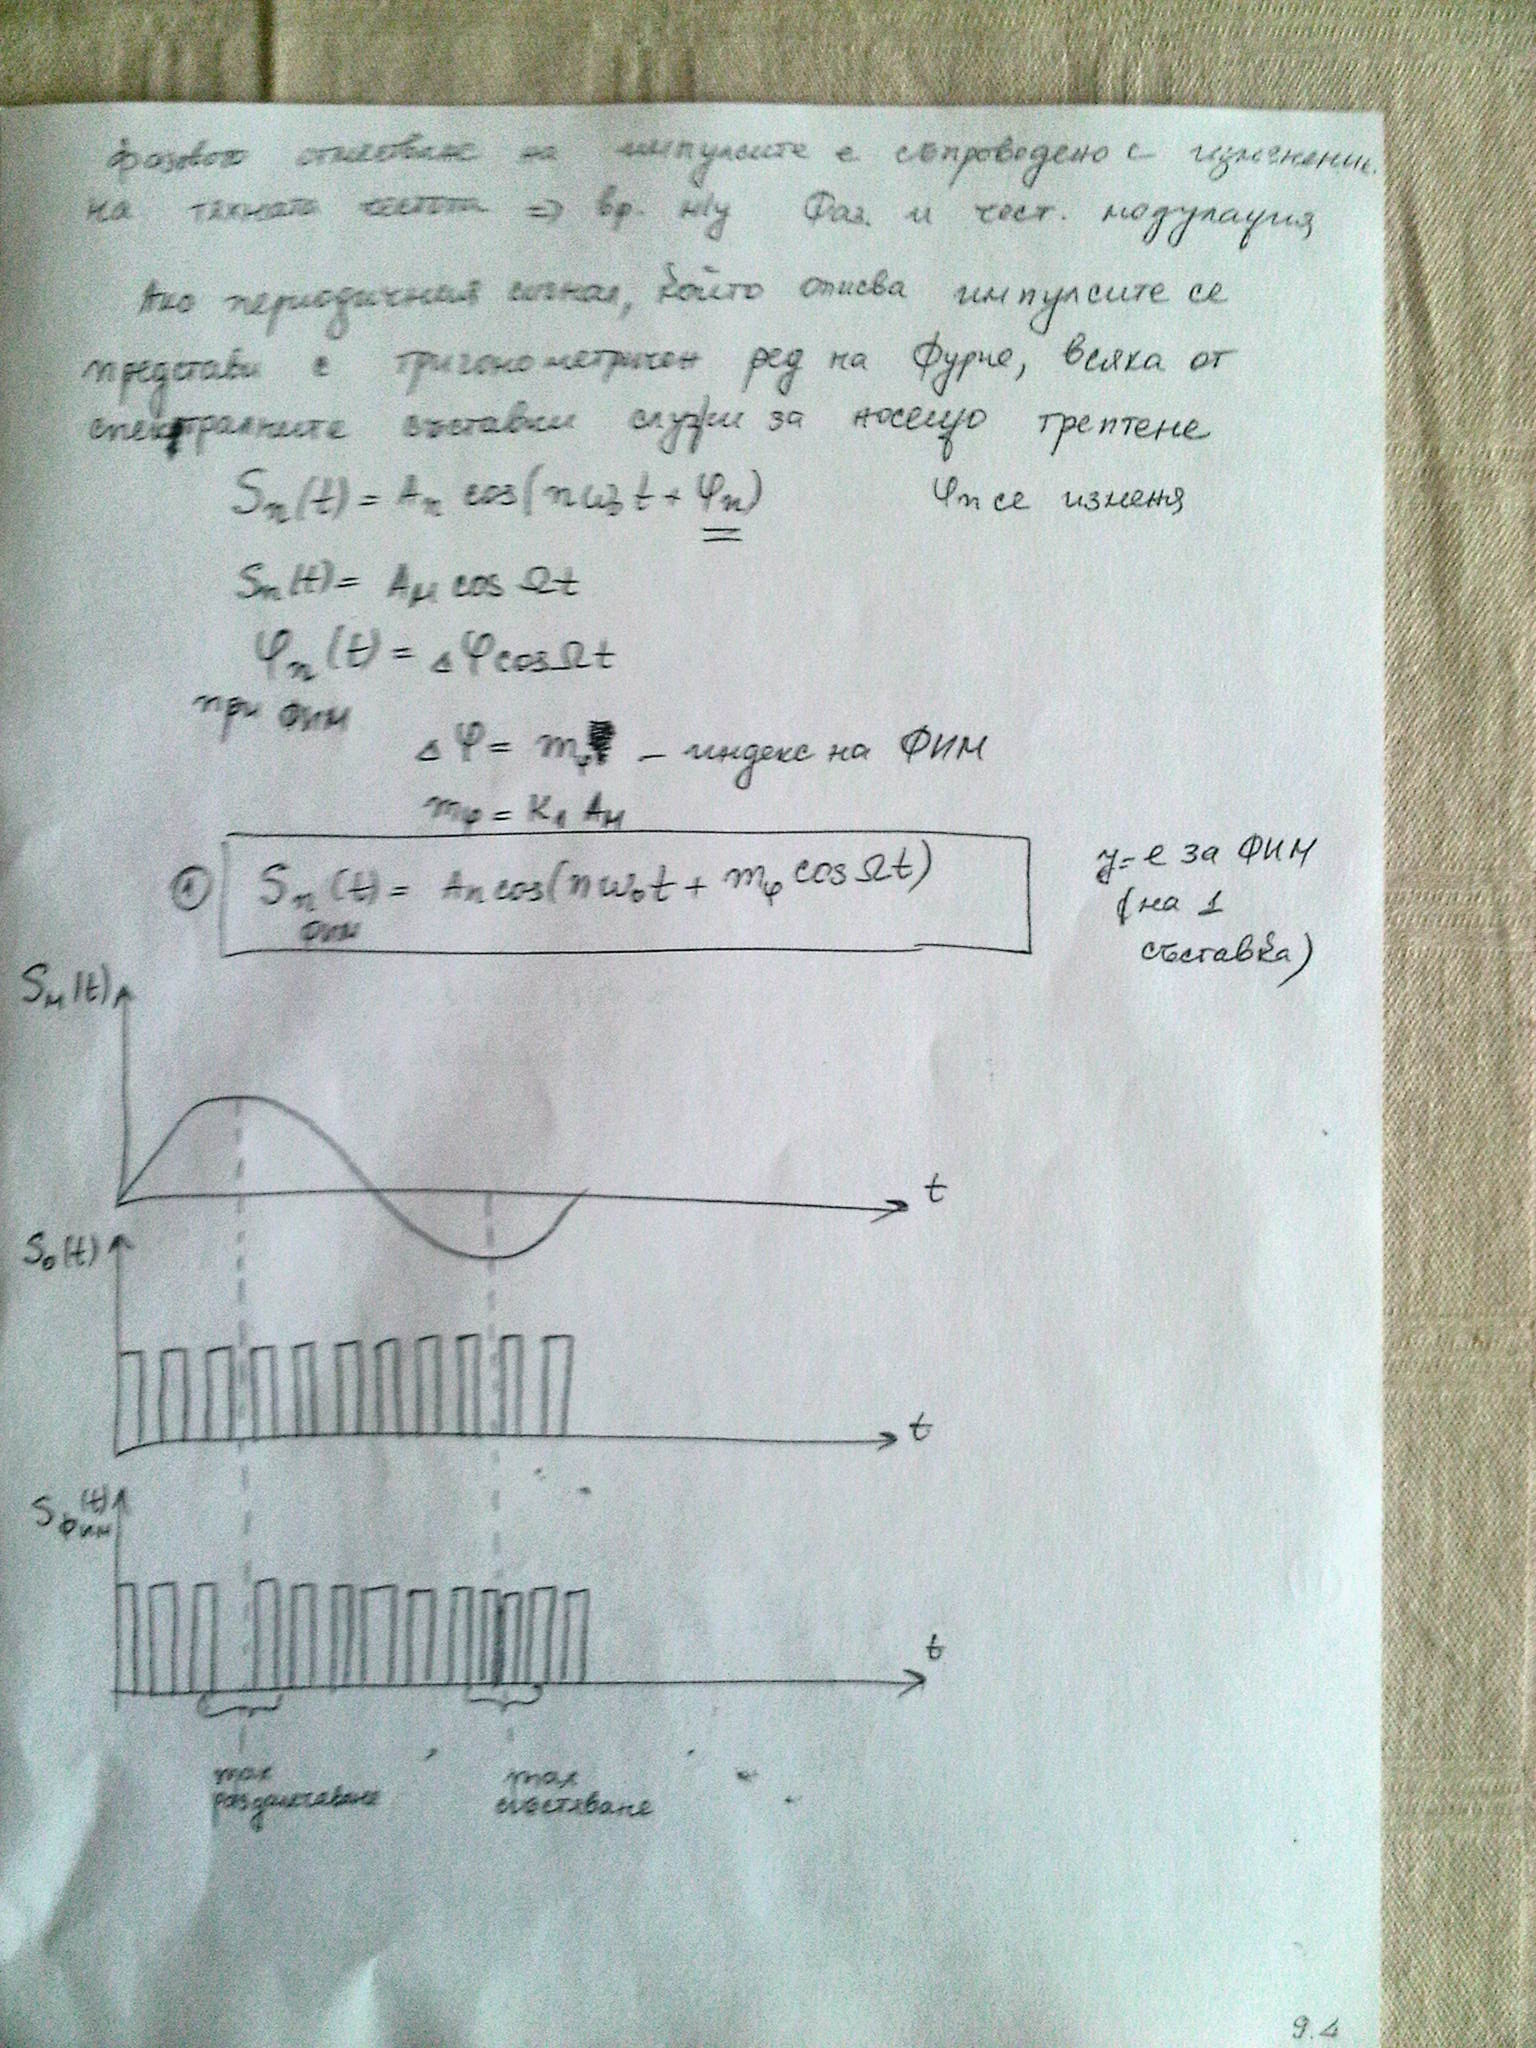 фазовото отместване на импулсите е съпроведено с изменение
на тяхната честота => вр. м/у Фаз. и чест. модулация
Ако периодичния сигнал, който описва импулсите се
представи с тригонометричен ред на Фурие, всяка от
спектралните съставки служи за носещо трептене
Sn(t) = An cos(nω₀t + φn) φn се изменя
Sn(t) = Aм cos Ωt
φn(t) = Δφ cos Ωt
при ФИМ
Δφ = mφ – индекс на ФИМ
mφ = K₁ Aм
① Sn(t) = An cos(nω₀t + mφ cos Ωt) у-е за ФИМ
ФИМ (на 1
съставка)
Sм(t)
t
S₀(t)
t
Sфим(t)
t
max max
раздалечаване сгъстяване
9.4